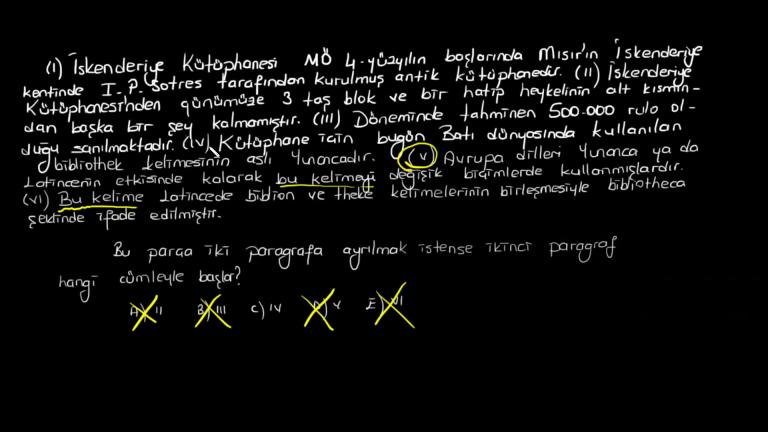 (I) İskenderiye Kütüphanesi MÖ 4.yüzyılın başlarında Mısır'ın İskenderiye
kentinde I. P. Sotres tarafından kurulmuş antik kütüphanedir. (II) İskenderiye
Kütüphanesi'nden günümüze 3 taş blok ve bir hatip heykelinin alt kısmın-
dan başka bir şey kalmamıştır. (III) Döneminde tahminen 500.000 rulo ol-
duğu sanılmaktadır. (IV) Kütüphane için bugün Batı dünyasında kullanılan
bibliothek kelimesinin aslı Yunancadır. (V) Avrupa dilleri Yunanca ya da
Latincenin etkisinde kalarak bu kelimeyi değişik biçimlerde kullanmışlardır.
(VI) Bu kelime Latincede biblion ve theke kelimelerinin birleşmesiyle bibliotheca
şeklinde ifade edilmiştir.
Bu parça iki paragrafa ayrılmak istense ikinci paragraf
hangi cümleyle başlar?
A) II B) III C) IV D) V E) VI